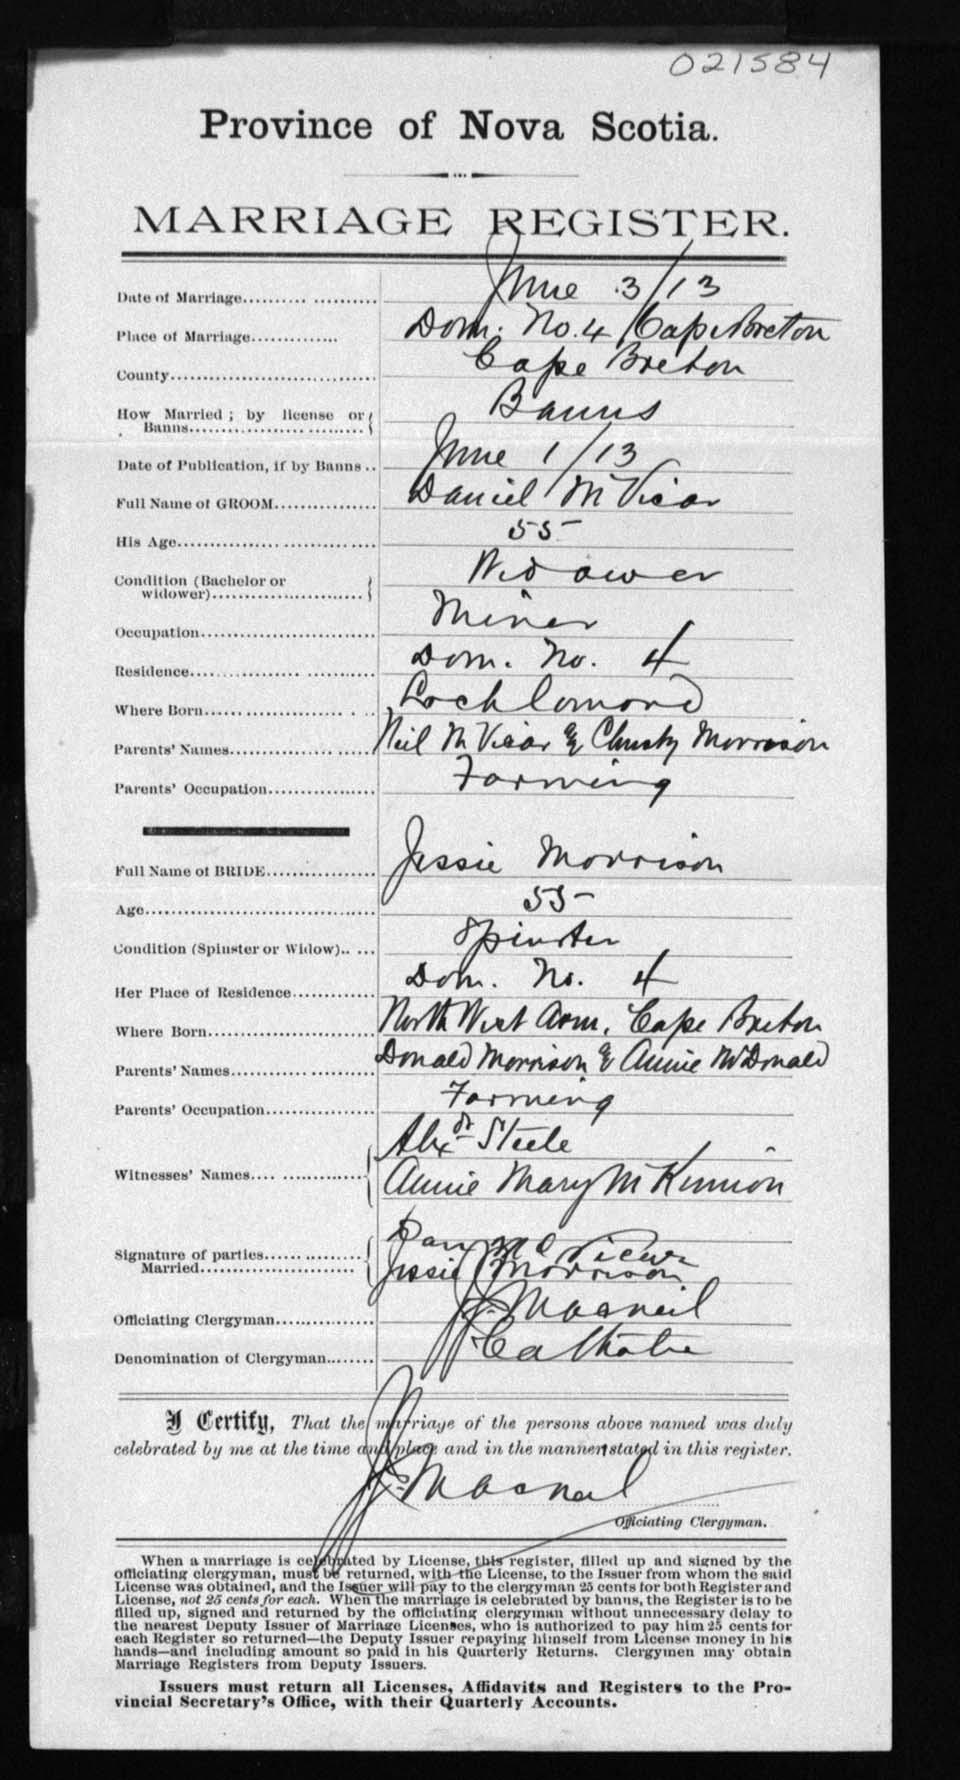 021584
Province of Nova Scotia.
MARRIAGE REGISTER.
Date of Marriage.......... ........... June 3/13
Place of Marriage............. Dom. No. 4 Cape Breton
County................................ Cape Breton
How Married ; by license or Banns
Banns................................
Date of Publication, if by Banns .. June 1/13
Full Name of GROOM................ Daniel McVicar
His Age................................ 55
Condition (Bachelor or Widower
widower)........................
Occupation........................... Miner
Residence............................. Dom. No. 4
Where Born........................ Loch Lomond
Parents' Names...................... Neil McVicar & Christy Morrison
Parents' Occupation................. Farming
Full Name of BRIDE.................. Jessie Morrison
Age.................................... 55
Condition (Spinster or Widow).. ... Spinster
Her Place of Residence............. Dom. No. 4
Where Born........................... North West Arm, Cape Breton
Parents' Names........................ Donald Morrison & Annie McDonald
Parents' Occupation................. Farming
Alexdr Steele
Witnesses' Names.... .............. Annie Mary McKinnion
Signature of parties................ Dan Mc Vicar
Married........................ Jessie Morrison
Officiating Clergyman............... J. J. Macneil
Denomination of Clergyman........ Catholic
I Certify, That the marriage of the persons above named was duly
celebrated by me at the time and place and in the manner stated in this register.
J. J. Macneil
Officiating Clergyman.
When a marriage is celebrated by License, this register, filled up and signed by the
officiating clergyman, must be returned, with the License, to the Issuer from whom the said
License was obtained, and the Issuer will pay to the clergyman 25 cents for both Register and
License, not 25 cents for each. When the marriage is celebrated by banns, the Register is to be
filled up, signed and returned by the officiating clergyman without unnecessary delay to
the nearest Deputy Issuer of Marriage Licenses, who is authorized to pay him 25 cents for
each Register so returned—the Deputy Issuer repaying himself from License money in his
hands—and including amount so paid in his Quarterly Returns. Clergymen may obtain
Marriage Registers from Deputy Issuers.
Issuers must return all Licenses, Affidavits and Registers to the Pro-
vincial Secretary's Office, with their Quarterly Accounts.